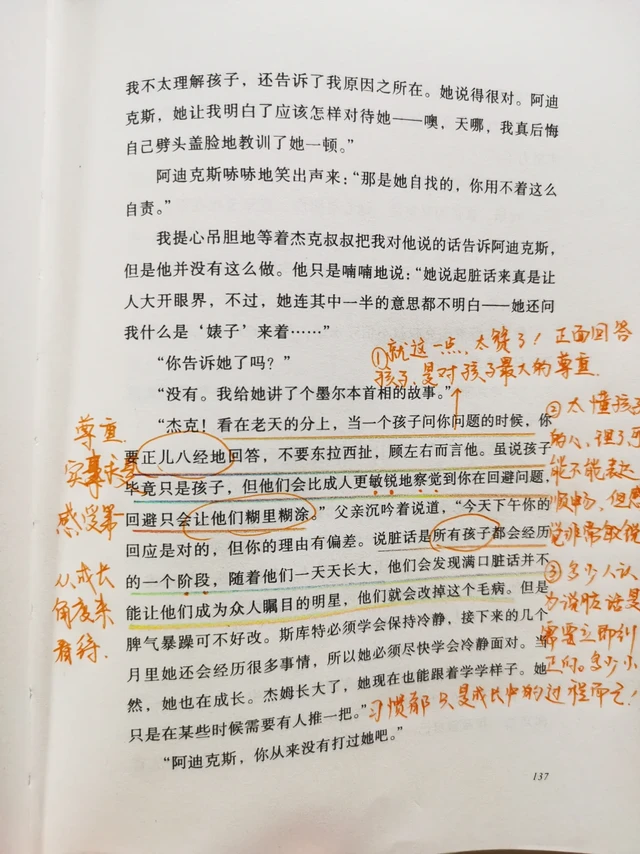 我不太理解孩子，还告诉了我原因之所在。她说得很对。阿迪
克斯，她让我明白了应该怎样对待她——噢，天哪，我真后悔
自己劈头盖脸地教训了她一顿。”
阿迪克斯哧哧地笑出声来：“那是她自找的，你用不着这么
自责。”
我提心吊胆地等着杰克叔叔把我对他说的话告诉阿迪克斯，
但是他并没有这么做。他只是喃喃地说：“她说起脏话来真是让
人大开眼界，不过，她连其中一半的意思都不明白——她还问
我什么是‘婊子’来着……”
“你告诉她了吗？”
“没有。我给她讲了个墨尔本首相的故事。”
“杰克！看在老天的分上，当一个孩子问你问题的时候，你
要正儿八经地回答，不要东拉西扯，顾左右而言他。虽说孩子
毕竟只是孩子，但他们会比成人更敏锐地察觉到你在回避问题，
回避只会让他们糊里糊涂。”父亲沉吟着说道，“今天下午你的
回应是对的，但你的理由有偏差。说脏话是所有孩子都会经历
的一个阶段，随着他们一天天长大，他们会发现满口脏话并不
能让他们成为众人瞩目的明星，他们就会改掉这个毛病。但是
脾气暴躁可不好改。斯库特必须学会保持冷静，接下来的几个
月里她还会经历很多事情，所以她必须尽快学会冷静面对。当
然，她也在成长。杰姆长大了，她现在也能跟着学学样子。她
只是在某些时候需要有人推一把。”
“阿迪克斯，你从来没有打过她吧。”
137
①就这一点，太赞了！正面回答
孩子，是对孩子最大的尊重
尊重
实事求是
感受第一
从成长
角度来
看待.
②太懂孩子
的人，
能不能表达
顺畅，但感
觉非常敏锐
③多少人认
为说脏话是
需要立即纠
正的.多少小
习惯都只是成长中的过程而已！